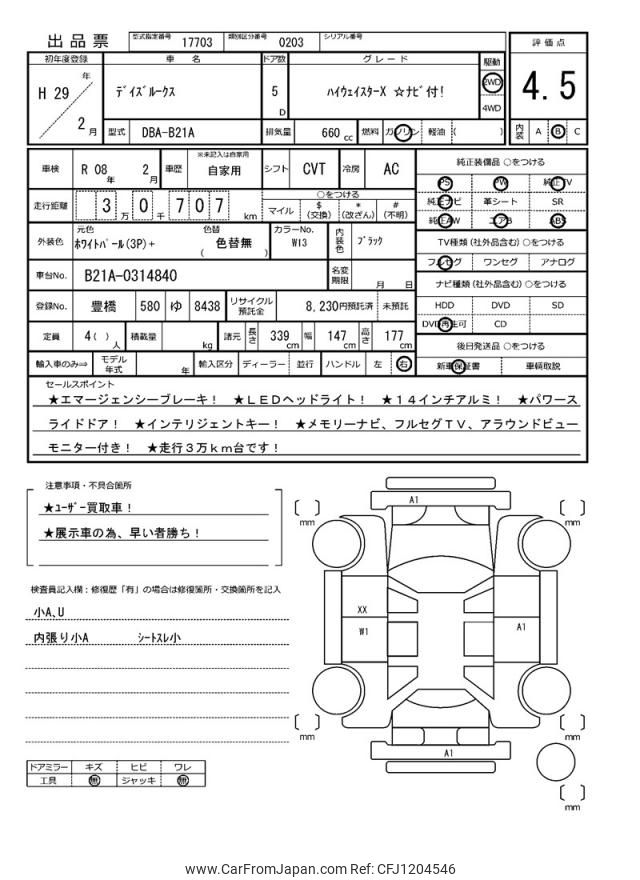 出品票 型式指定番号 17703 類別区分番号 0203 シリアル番号
評価点
4.5
内装 A B C
初年度登録 車名 ドア数 グレード 駆動
H 29 年 2 月
デイズルークス 5 D ハイウェイスターX ☆ナビ付! 2WD 4WD
型式 DBA-B21A 排気量 660 cc 燃料 ガソリン 軽油 ( )
車検 R 08 年 2 月 車歴 ※未記入は自家用 自家用 シフト CVT 冷房 AC
走行距離 3 万 0 千 7 0 7 km
○をつける
マイル $ (交換) * (改ざん) # (不明)
外装色 元色 ホワイトパール(3P)+ 色替 ( 色替無 ) カラーNo. W13 内装色 ブラック
車台No. B21A-0314840 名変期限 月 日
登録No. 豊橋 580 ゆ 8438 リサイクル預託金 8,230円預託済 未預託
定員 4( )人 積載量 kg 諸元 長さ 339 cm 幅 147 cm 高さ 177 cm
輸入車のみ⇒ モデル年式 年 輸入区分 ディーラー 並行 ハンドル 左 右
純正装備品 ○をつける
PS PW 純正TV
純正ナビ 革シート SR
純正AW エアB ABS
TV種類(社外品含む) ○をつける
フルセグ ワンセグ アナログ
ナビ種類(社外品含む) ○をつける
HDD DVD SD
DVD再生可 CD
後日発送品 ○をつける
新車保証書 車輌取説
セールスポイント
★エマージェンシーブレーキ! ★LEDヘッドライト! ★14インチアルミ! ★パワース
ライドドア! ★インテリジェントキー! ★メモリーナビ、フルセグTV、アラウンドビュー
モニター付き! ★走行3万km台です!
注意事項・不具合箇所
★ユーザー買取車!
★展示車の為、早い者勝ち!
検査員記入欄:修復歴「有」の場合は修復箇所・交換箇所を記入
小A、U
内張り小A シートスレ小
ドアミラー キズ ヒビ ワレ
工具 無 ジャッキ 無
A1
mm mm
XX
W1 A1
mm mm
A1
mm
www.CarFromJapan.com Ref: CFJ1204546